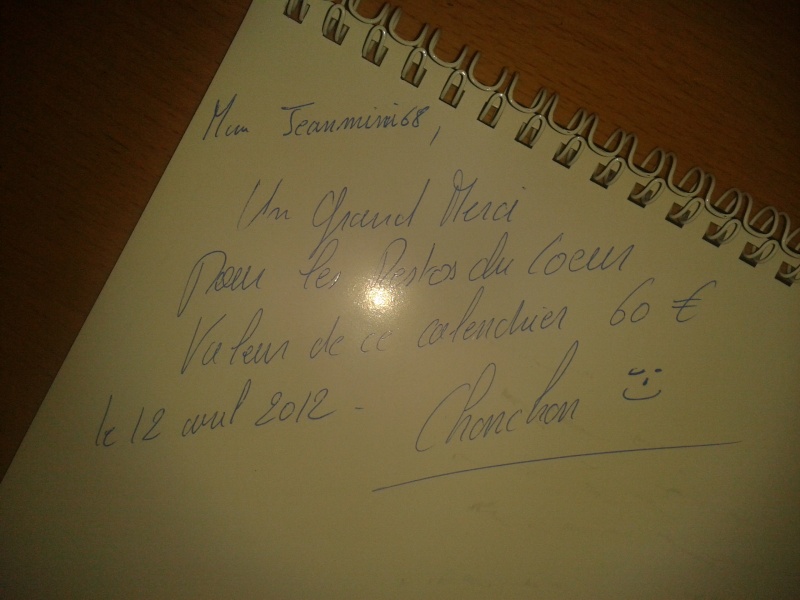 Mon Jeanmimi68,
Un Grand Merci
Pour les Restos du Coeur
Valeur de ce calendrier 60 €
le 12 avril 2012 -
Chonchon